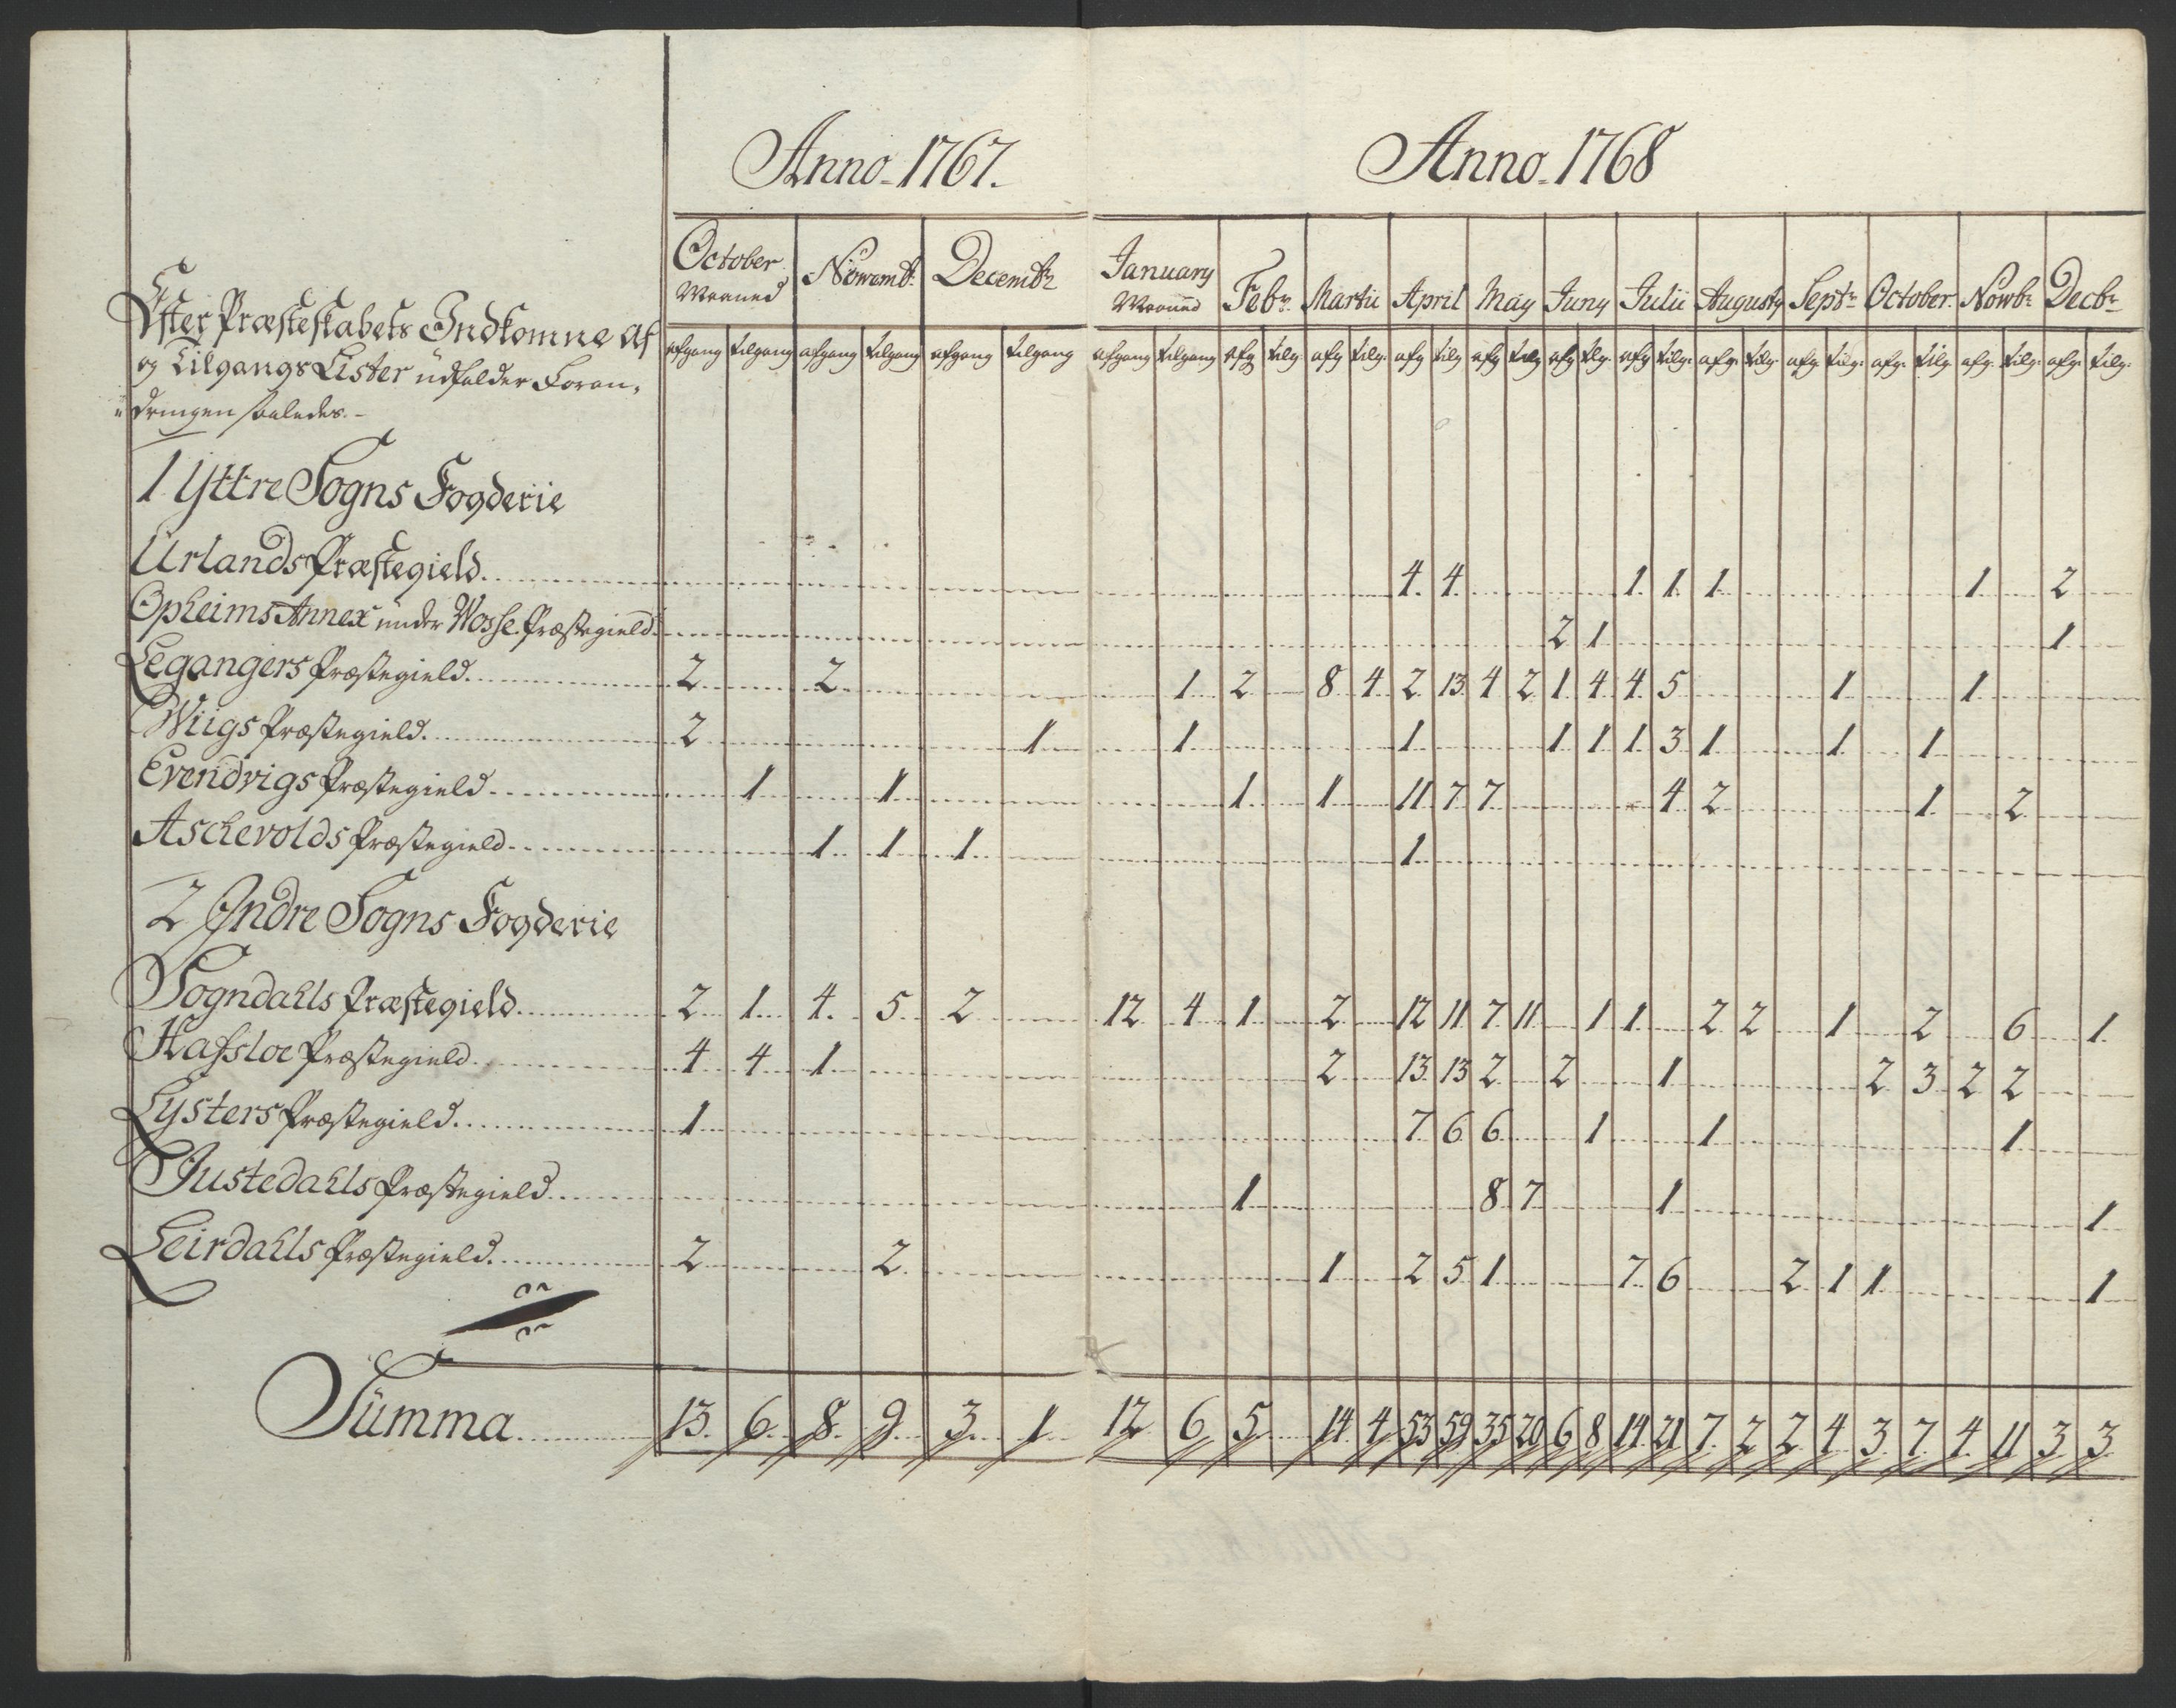 Anno 1767.
Anno 1768
October Maaned Novemb: Decembr January Maaned Febr. Martii April May Juny Julii Augusty Septr October Novbr Decbr
Efter Præsteskabets Indkomne Af
og Tilgangs Lister üdfalder Foran,
dringen saaledes.
afgang tilgang afgang tilgang afgang tilgang afgang tilgang afg tilg afg tilg: afg tilg afg tilg afg tilg: afg tilg: afg: tilg: afg: tilg: afg: tilg afg. tilg: afg: tilg:
1 Yttre Sogns Fogderie
Urlands Præstegield. 4. 4. 1. 1. 1. 1. 2.
Opheims Annex ünder Vosse Præstegield. 2 1. 1.
Legangers Præstegield. 2. 2. 1. 2. 8 4. 2. 13. 4 2 1. 4. 4. 5 1. 1.
Wiigs Præstegield. 2. 1. 1. 1. 1 1. 1. 3 1. 1. 1.
Evendvigs Præstegield. 1. 1. 1. 1. 11 7. 7. 4 2. 1. 2.
Aschevolds Præstegield. 1. 1. 1. 1.
2 Indre Sogns Fogderie
Sogndahls Præstegield. 2. 1. 4. 5. 2 12 4. 1. 2. 12 11 7 11 1. 1. 2. 2 1. 2 6. 1.
Hafsloe Præstegield. 4. 4 1. 2. 13. 13. 2 2. 1. 2. 3. 2 2.
Lysters Præstegield. 1. 7. 6. 6. 1. 1. 1.
Justedahls Præstegield. 1. 8. 7. 1. 1.
Leirdahls Præstegield. 2. 2. 1. 2 5. 1. 7. 6. 2. 1. 1. 1.
Sümma. 13. 6. 8. 9. 3. 1. 12. 6 5. 14. 4. 53 59 35 20 6 8. 14. 21 7. 2 2. 4. 3. 7. 4. 11 3. 3.